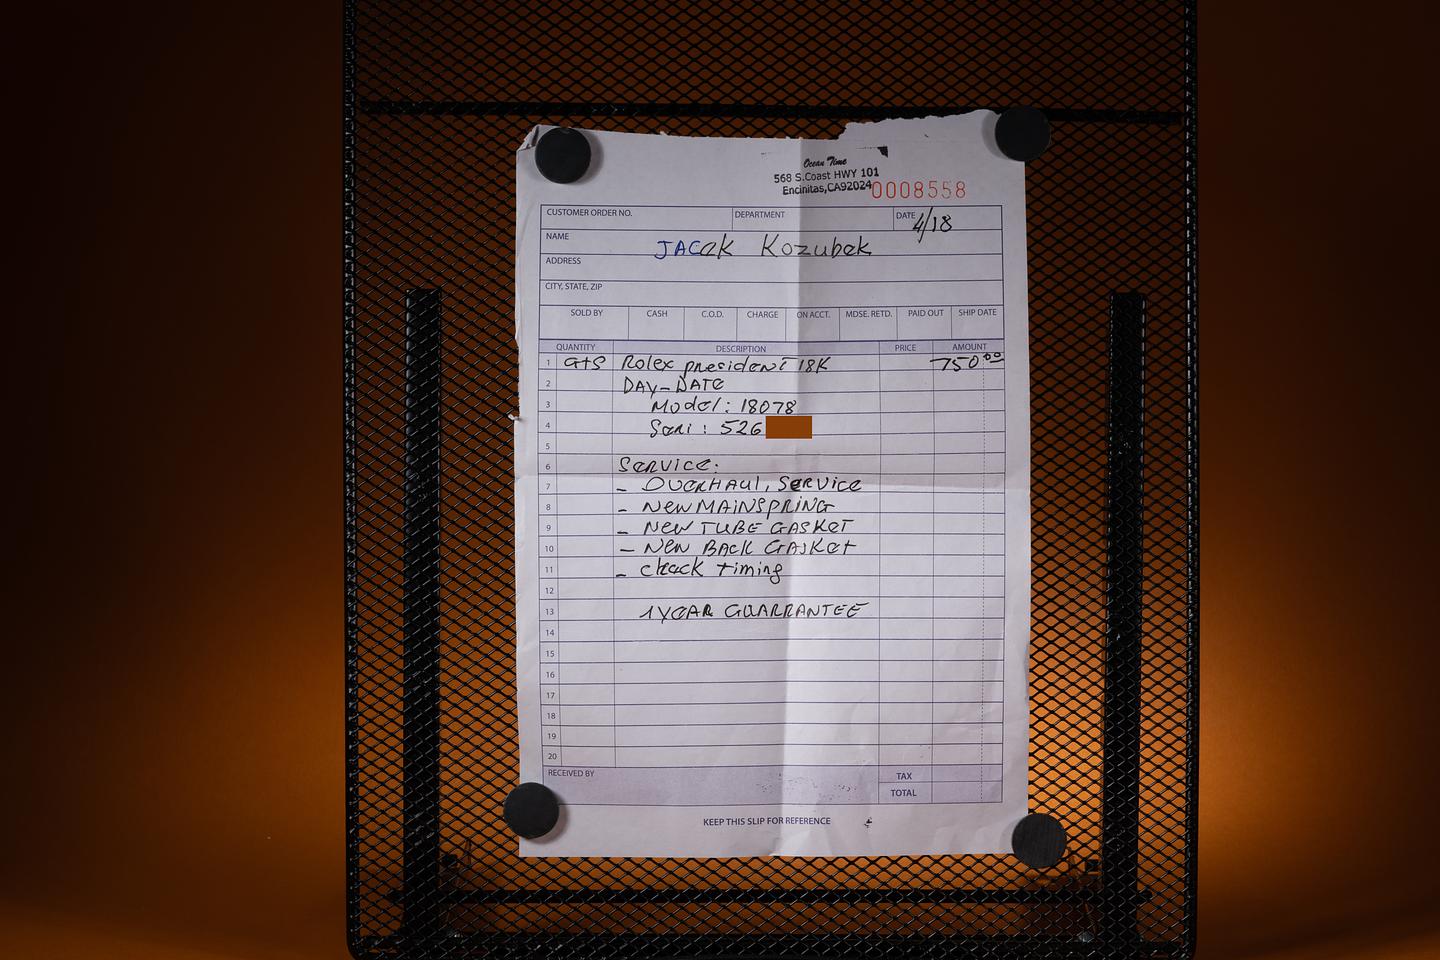 Ocean Time
568 S.Coast HWY 101
Encinitas,CA92024
0008558
CUSTOMER ORDER NO. DEPARTMENT DATE 4/18
NAME JACek Kozubek
ADDRESS
CITY, STATE, ZIP
SOLD BY CASH C.O.D. CHARGE ON ACCT. MDSE. RETD. PAID OUT SHIP DATE
QUANTITY DESCRIPTION PRICE AMOUNT
1 GTS Rolex president 18K 750.00
2 DAY-DATE
3 Model: 18078
4 Seri: 526
5
6 SERVICE:
7 - OVERHAUL, SERVICE
8 - NEW MAINSPRING
9 - NEW TUBE GASKET
10 - NEW BACK GASKET
11 - check timing
12
13 1 YEAR GUARRANTEE
14
15
16
17
18
19
20
RECEIVED BY TAX
TOTAL
KEEP THIS SLIP FOR REFERENCE